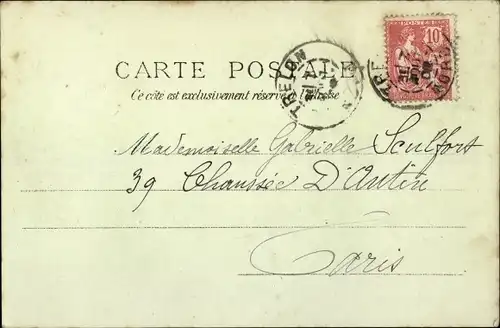 POSTES
10
CARTE POSTALE
Ce côté est exclusivement réservé à l'adresse
TRELON
TRELON
Mademoiselle Gabrielle Sculfort
39 Chaussée D'Antin
Paris